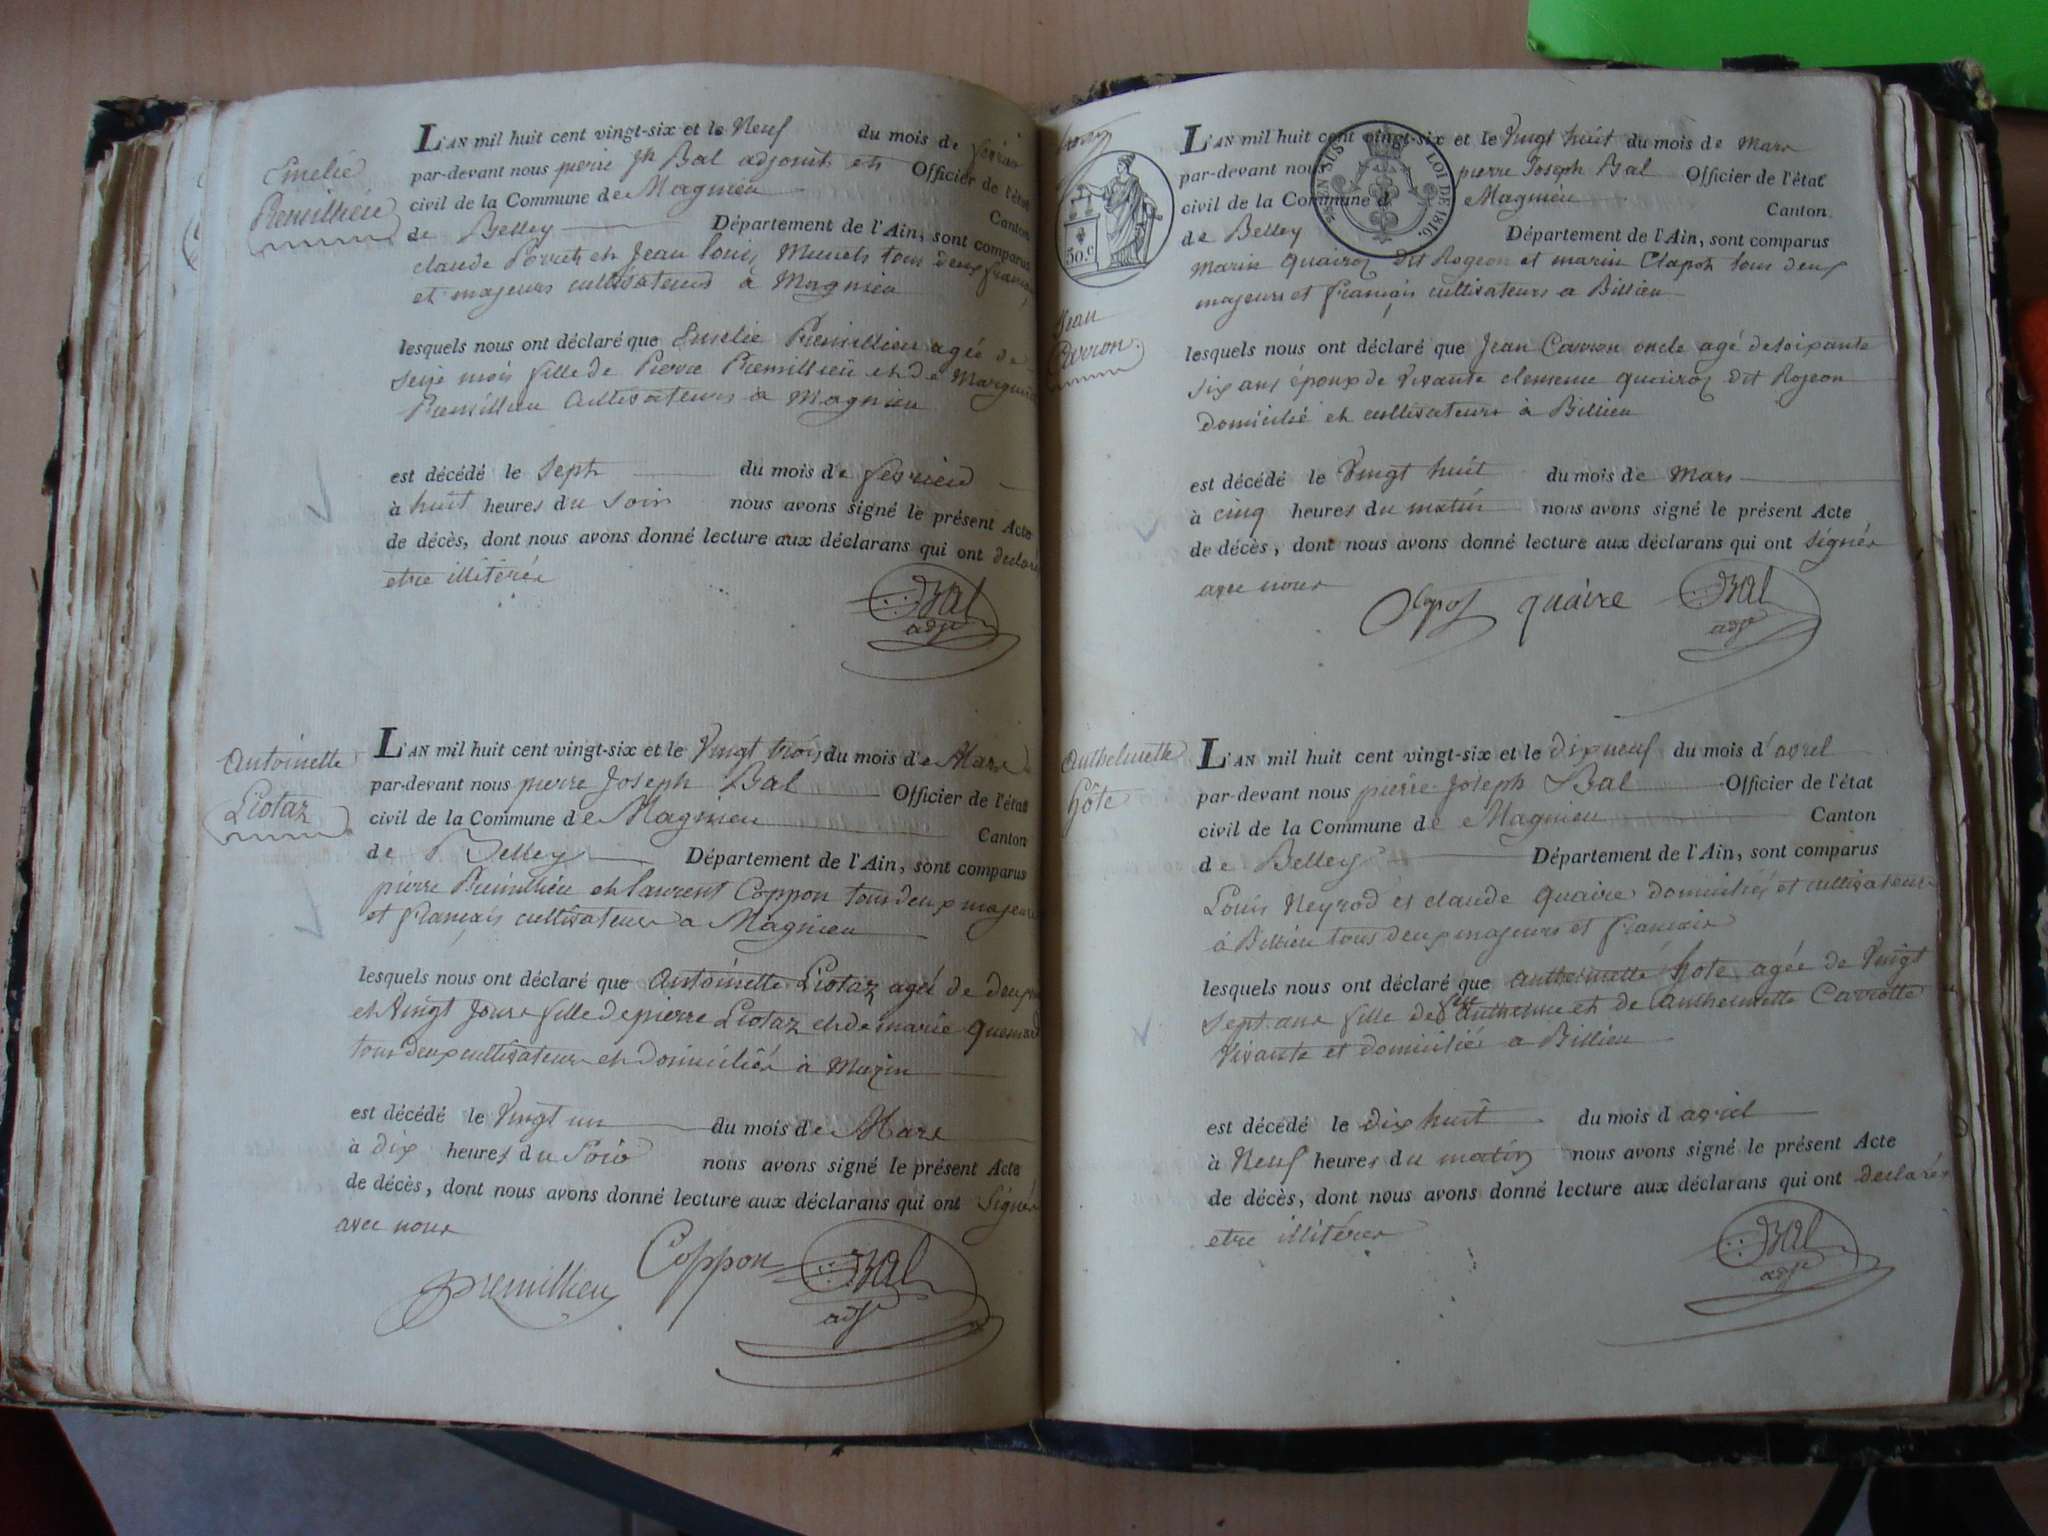 Emélie
Premillieu
L'AN mil huit cent vingt-six et le Neuf du mois de fevrier
par-devant nous pierre Jh Bal adjoint et Officier de l'état
civil de la Commune de Magnieu Canton
de Belley Département de l'Ain, sont comparus
claude et Jean louis tous deux français
et majeurs cultivateurs à Magnieu
lesquels nous ont déclaré que Emelie Premillieu agée de
seize mois fille de Pierre Premillieu et de Marguerite
Premillieu cultivateurs a Magnieu
est décédé le sept du mois de fevrier
à huit heures du soir nous avons signé le présent Acte
de décès, dont nous avons donné lecture aux déclarans qui ont declaré
etre illiterés
Bal
adjt
Antoinette
Liotaz
L'AN mil huit cent vingt-six et le Vingt trois du mois de Mars
par-devant nous pierre Joseph Bal Officier de l'état
civil de la Commune de Magnieu Canton
de Belley Département de l'Ain, sont comparus
pierre Premillieu et laurent Coppon tous deux majeurs
et français cultivateurs a Magnieu
lesquels nous ont déclaré que Antoinette Liotaz agée de deux
et Vingt Jours fille de pierre Liotaz et de marie
tous deux cultivateurs et domiciliés à
est décédé le Vingt un du mois de Mars
à dix heures du Soir nous avons signé le présent Acte
de décès, dont nous avons donné lecture aux déclarans qui ont signés
avec nous
Premillieu Coppon Bal
adjt
30.c
EN SUS LOI DE 1816.
L'AN mil huit cent vingt-six et le Vingt huit du mois de Mars
par-devant nous pierre Joseph Bal Officier de l'état
civil de la Commune d Magnieu Canton
de Belley Département de l'Ain, sont comparus
Marin dit Rogeon et marin Clapot tous deux
majeurs et français cultivateurs a Billieu
Jean
Carron
lesquels nous ont déclaré que Jean Carron oncle agé de soixante
six ans époux de vivante clemence dit Rojeon
domicilié et cultivateurs à Billieu
est décédé le Vingt huit du mois de Mars
à cinq heures du matin nous avons signé le présent Acte
de décès, dont nous avons donné lecture aux déclarans qui ont signés
avec nous
Clapot quaire Bal
adjt
Anthelmette
hôte
L'AN mil huit cent vingt-six et le dix neuf du mois d'avril
par-devant nous pierre Joseph Bal Officier de l'état
civil de la Commune de Magnieu Canton
de Belley Département de l'Ain, sont comparus
Louis Neyrod et claude quaire domiciliés et cultivateurs
à Billieu tous deux majeurs et français
lesquels nous ont déclaré que anthelmette hote agée de Vingt
sept ans fille de feu anthelme et de anthelmette Carrotte
vivante et domiciliée a Billieu
est décédé le dix huit du mois d avril
à Neuf heures du matin nous avons signé le présent Acte
de décès, dont nous avons donné lecture aux déclarans qui ont declarés
etre illitérés
Bal
adjt